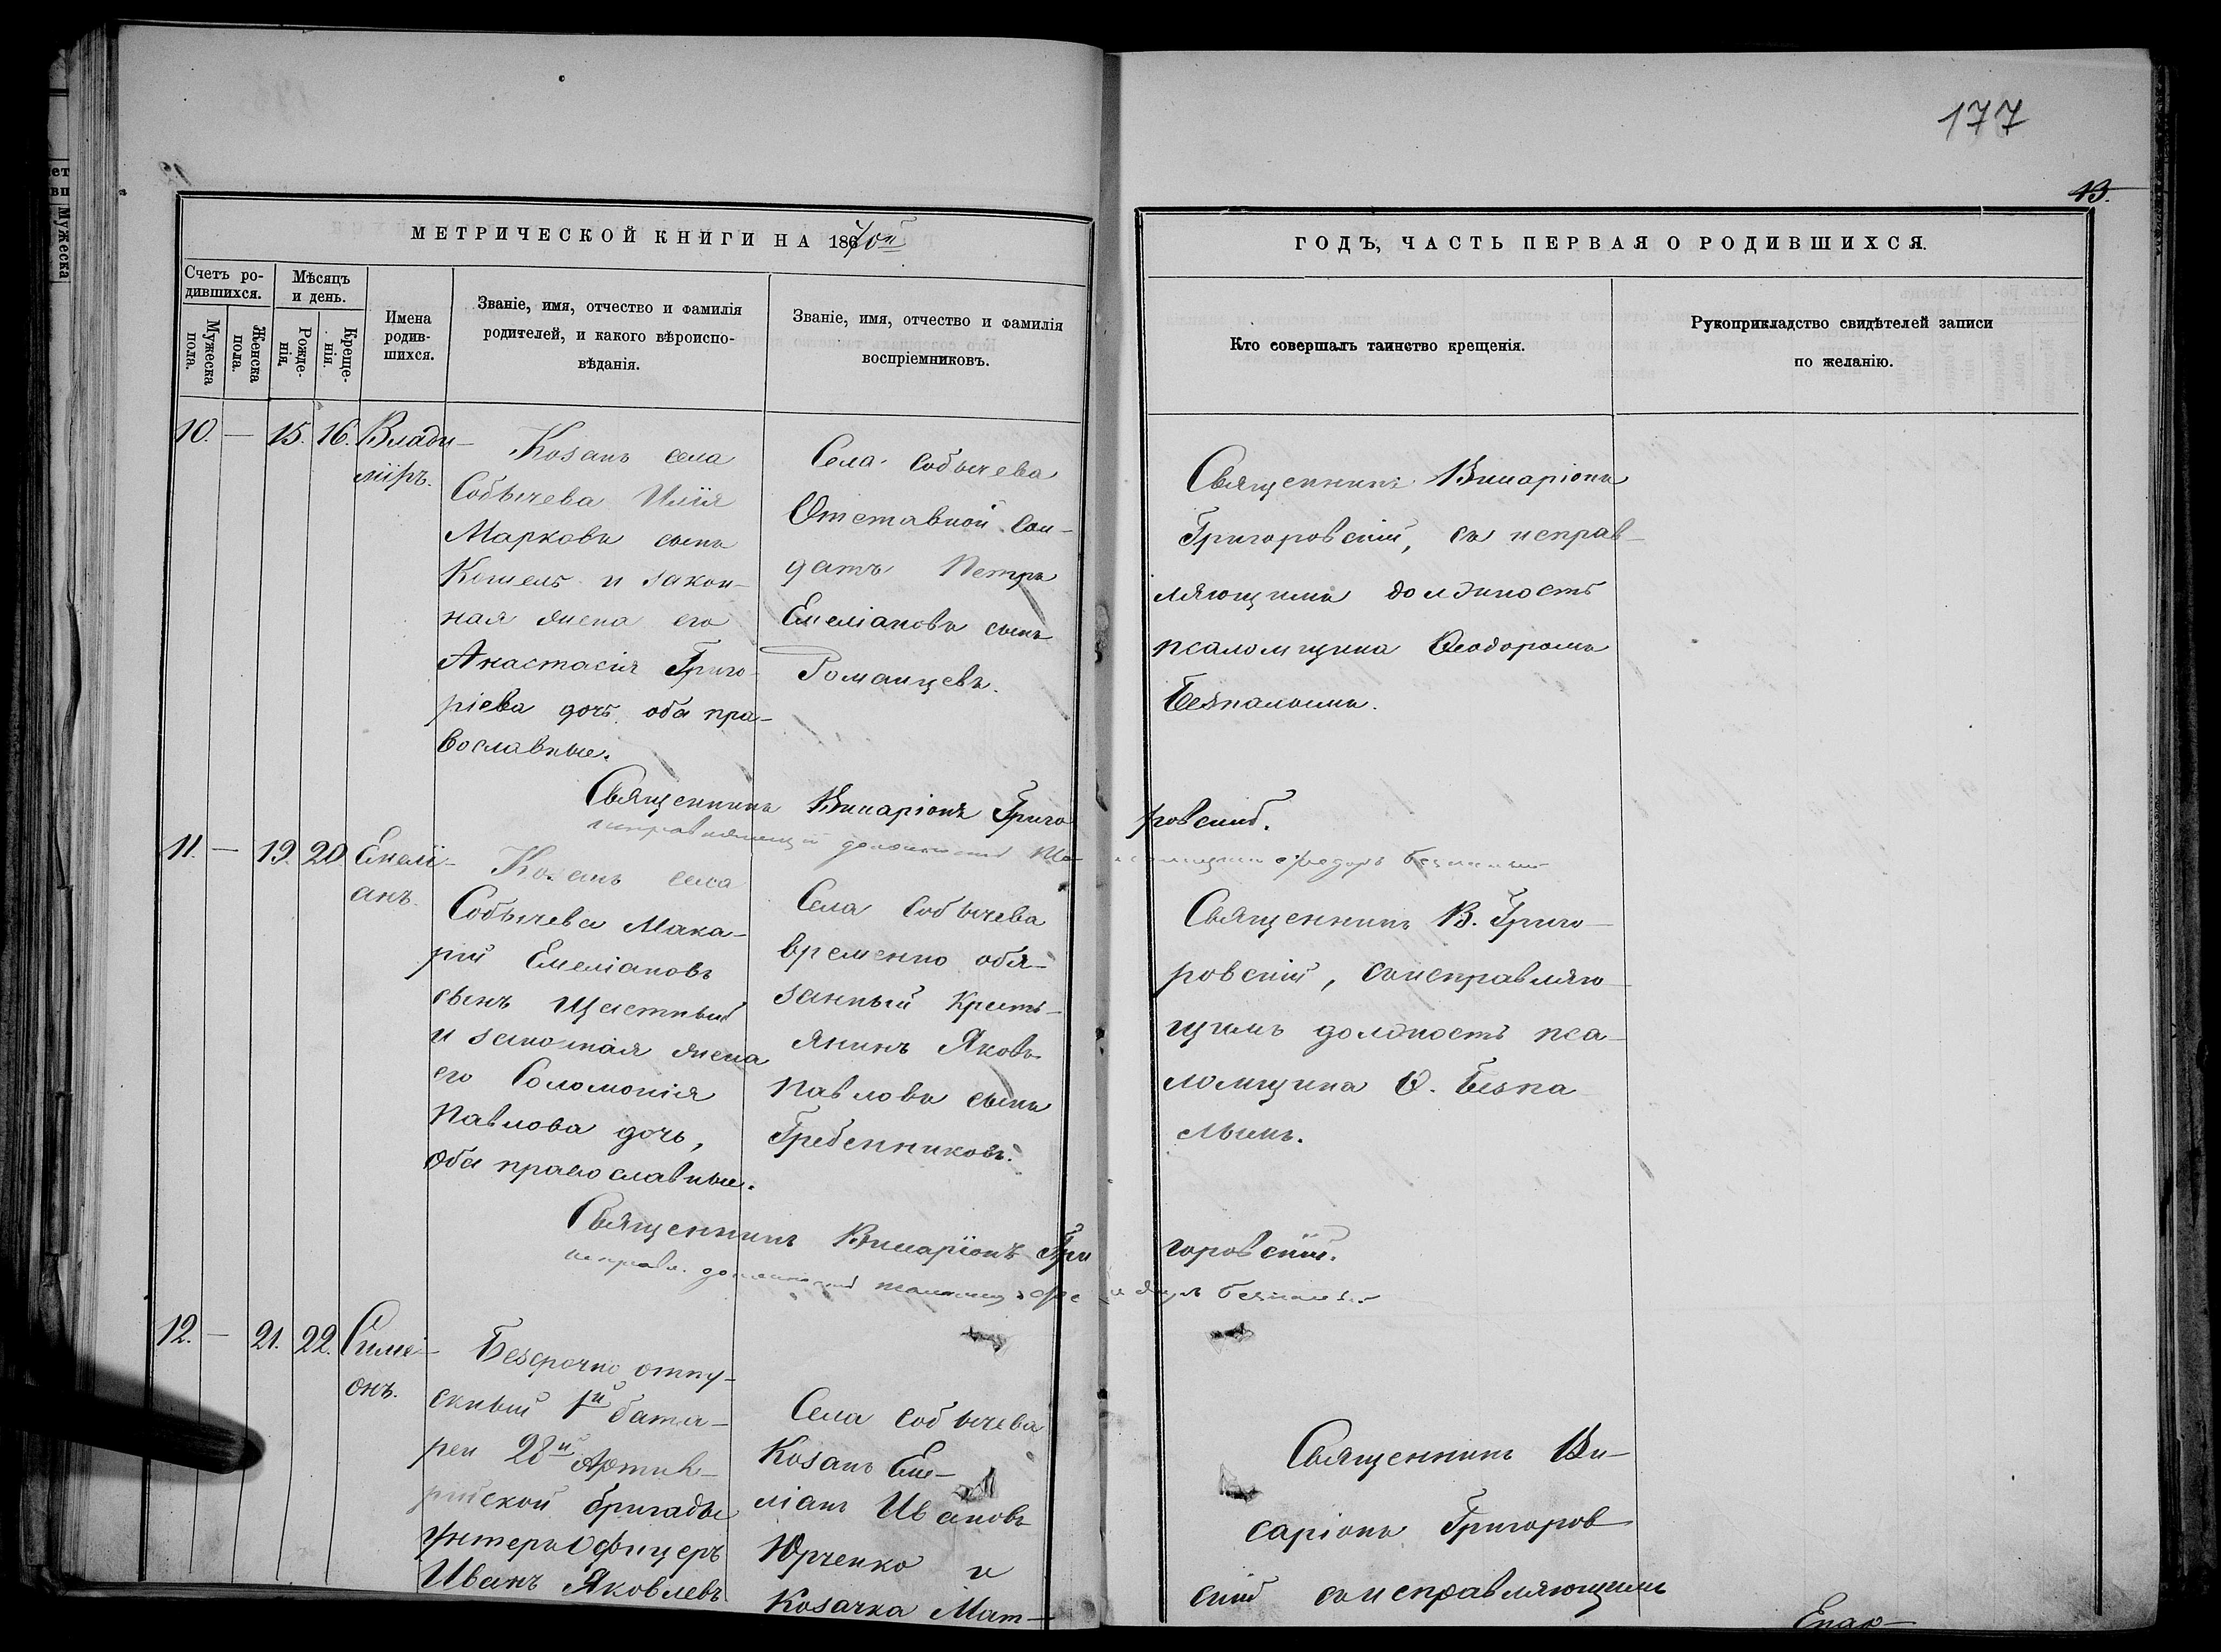 177
13.
МЕТРИЧЕСКОЙ КНИГИ НА 1870й
ГОДЪ, ЧАСТЬ ПЕРВАЯ О РОДИВШИХСЯ.
Счетъ ро-
дившихся.
Мужеска
пола.
Женска
пола.
Мѣсяцъ
и день.
Рожде-
нія.
Креще-
нія.
Имена
родив-
шихся.
Званіе, имя, отчество и фамилія
родителей, и какого вѣроиспо-
вѣданія.
Званіе, имя, отчество и фамилія
воспріемниковъ.
Кто совершалъ таинство крещенія.
Рукоприкладство свидѣтелей записи
по желанію.
10. — 15. 16. Влади-
міръ.
Козакъ села
Собычева Илія
Марковъ сынъ
Кошель и закон-
ная жена его
Анастасія Григо-
ріева дочь, оба пра-
вославные.
Села Собычева
Отставной сол-
датъ Петръ
Емеліановъ сынъ
Романцевъ.
Священникъ Виссаріонъ
Григоровскій, съ исправ-
ляющимъ должность
псаломщика Ѳеодоромъ
Безпалымъ.
Священникъ Виссаріонъ Григоровскій.
исправляющій должность
11. — 19. 20. Емелі-
анъ.
Козакъ села
Собычева Мака-
рій Емеліановъ
сынъ Щастный
и законная жена
его Соломонія
Павлова дочь,
Оба православные.
Села Собычева
временно обя-
занный Кресть-
янинъ Яковъ
Павловъ сынъ
Гребенниковъ.
Священникъ В. Григо-
ровскій, съ исправляю-
щимъ должность пса-
ломщика Ѳ. Безпа
лымъ.
Священникъ Виссаріонъ Григоровскій.
исправл. должность
12. — 21. 22. Симе-
онъ.
Безсрочно отпу-
скный 1й бата-
реи 28й Артиле-
рійской бригады
унтеръ Офицеръ
Иванъ Яковлевъ
Села Собычева
Козакъ Еме-
ліанъ Ивановъ
Юрченко и
Козачка Мат-
Священникъ Ви-
саріонъ Григоров
скій съ исправляющимъ
Епар-